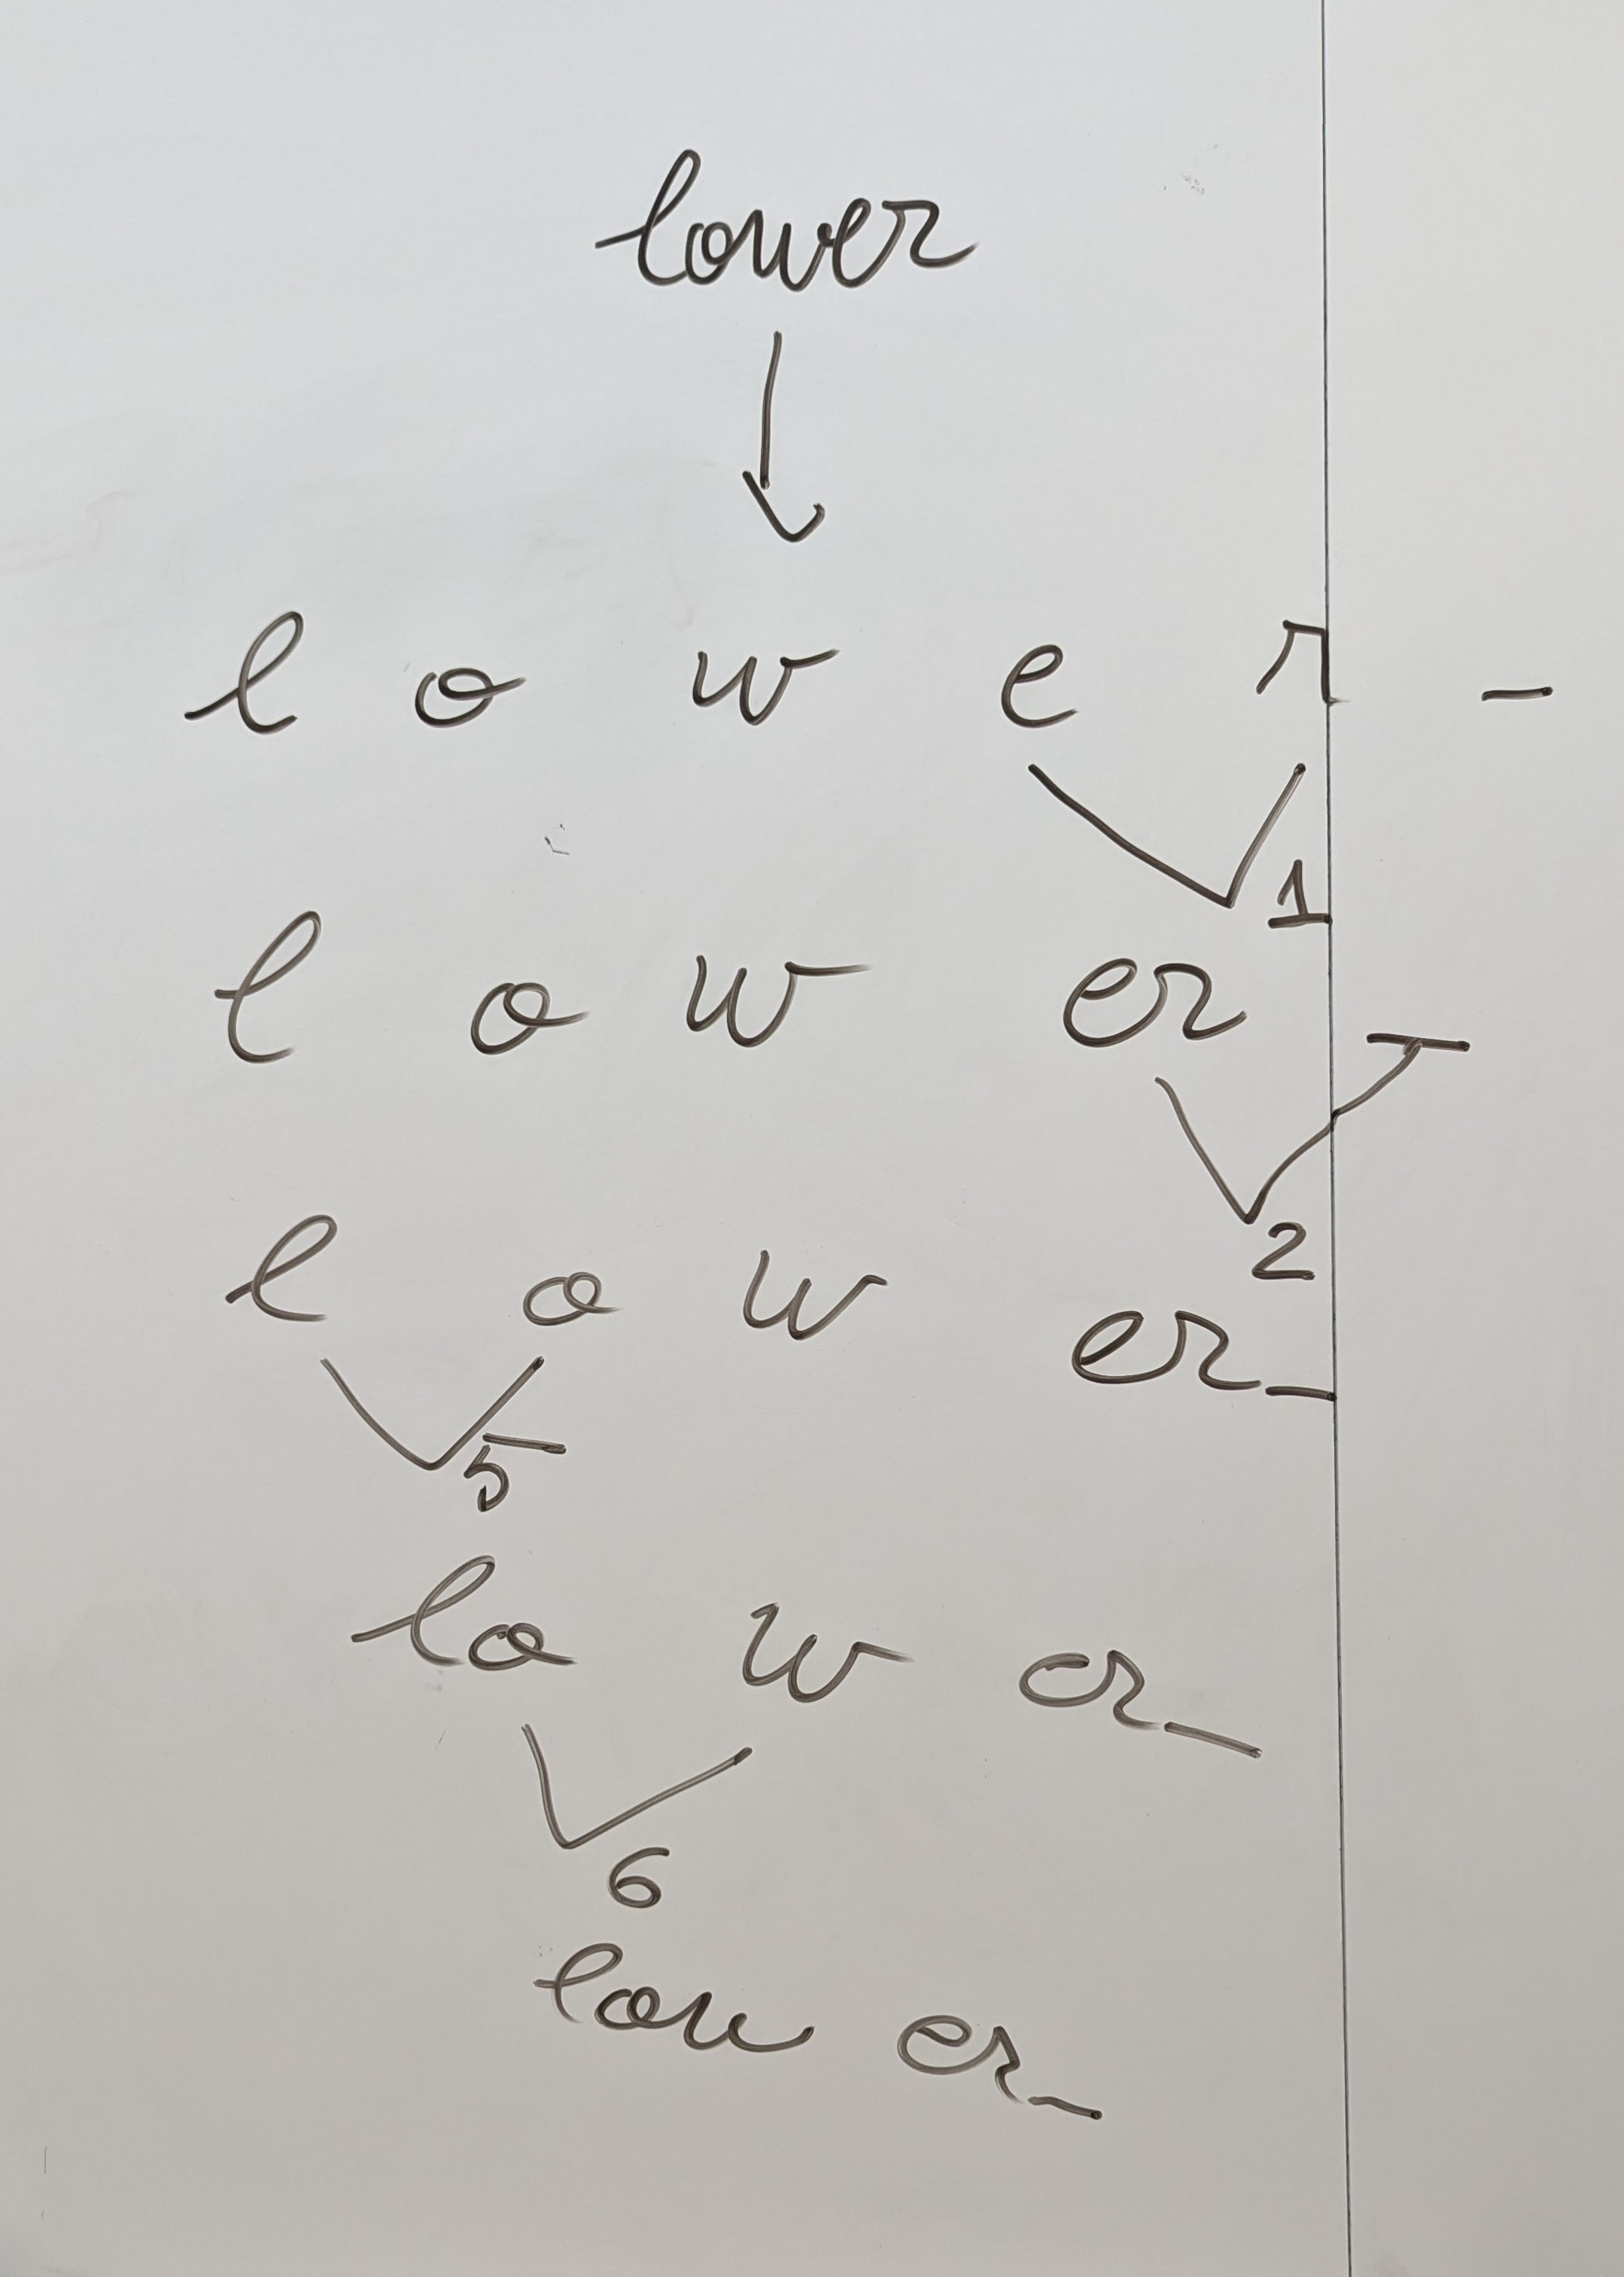 lower
l o w e r _
1
l o w er _
2
l o w er_
5
lo w er_
6
low er_